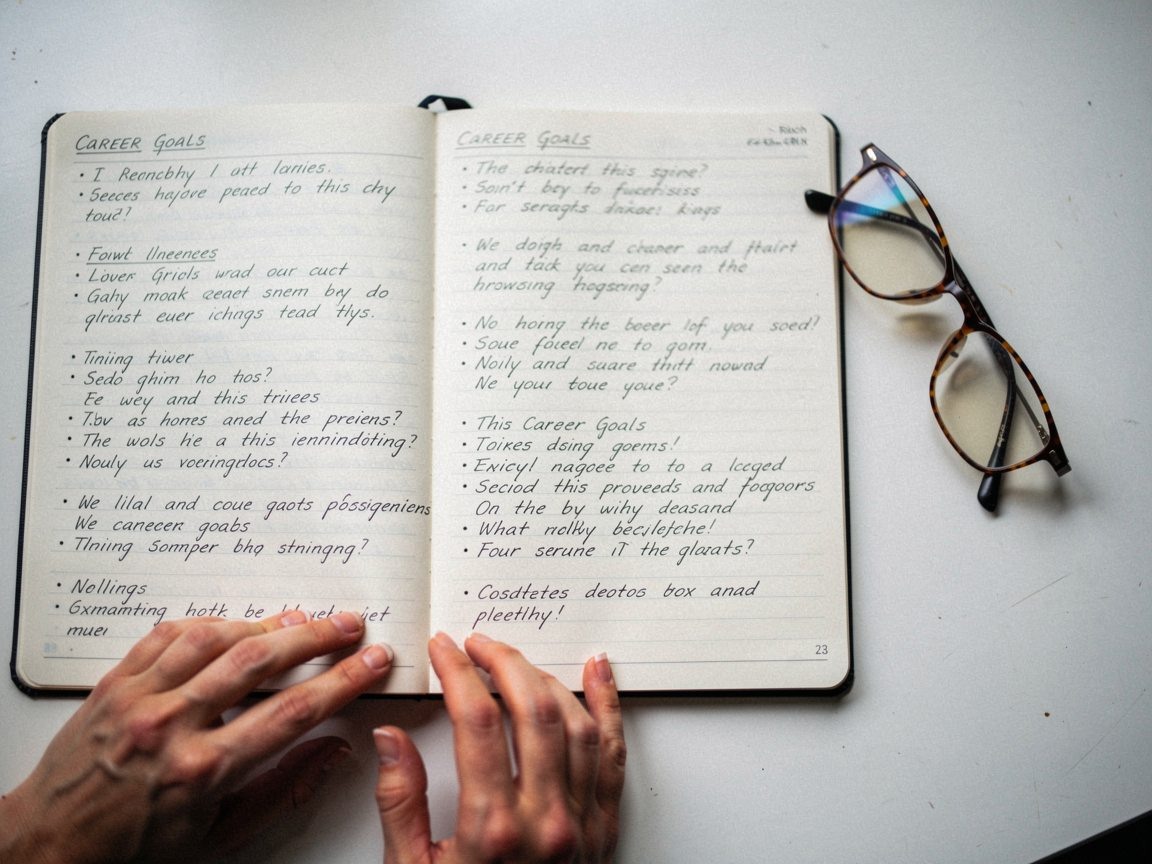 CAREER GOALS
• I Rerncbhy I att larries.
• Seeces hajove peaed to this chy
toud?
• Foiwt Ilneenees
• Lover Griols wrad our cuct
• Gahy moak eeaet snem bry do
qlrinst euer ichngs tead tlys.
• Tiniing tiwer
• Sedo ghim ho hos?
Ee wey and this triiees
• T.bv as hones aned the preiens?
• The wols he a this iennindoting?
• Nouly us voeringrlocs?
• We lilal and coue gaots possigeniens
We canecer goabs
• Tlniing Somnper bhq stningng?
• Nollings
• Gxmamting hotk be
muer
CAREER GOALS
• The chatert this sgine?
• Soin't bey to fucerisiss
• For seragts dnkae: kings
• We doigh and ceaner and ftairt
and tack you cen seen the
hrowsing hogsering?
• No horng the boeer lof you soed?
• Soue foueel ne to gom.
• Noily and suare thitt nowad
Ne your toue youe?
• This Career Goals
• Toikes dsing goems!
• Exicyl nagoee to to a lcqged
• Seciod this proveeds and foogoors
On the by wihy deasand
• What nolky becjlefche!
• Four serune iT the glarats?
• Cosdtetes deotos box anad
pleetlhy!
23